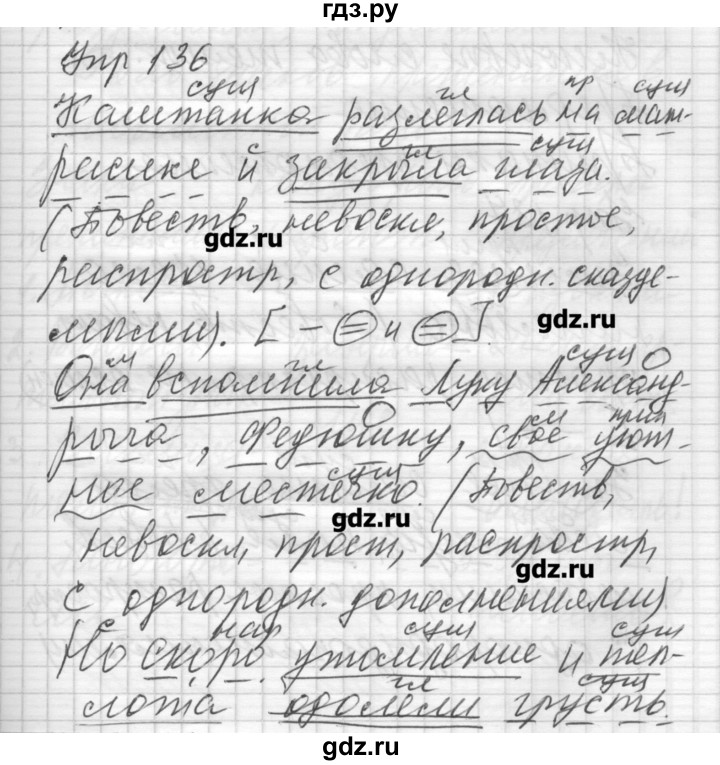 гдз.ру
Упр 136
сущ гл пр сущ
Каштанка разлеглась на мат-
с гл сущ
расике и закрыла глаза.
(Повеств, невоскл, простое,
gdz.ru
распростр, с однородн. сказуе-
мыми). [ – = и = ].
gdz.ru
м гл сущ
Она вспомнила Луку Александ-
м прил
рыча, Федюшку, свое уют-
сущ
ное местечко. (Повеств,
gdz.ru
невоскл, прост, распростр,
gdz.ru
с однородн. дополнениями)
с нар сущ сущ
Но скоро утомление и теп-
гл сущ
лота одолели грусть.
gdz.ru